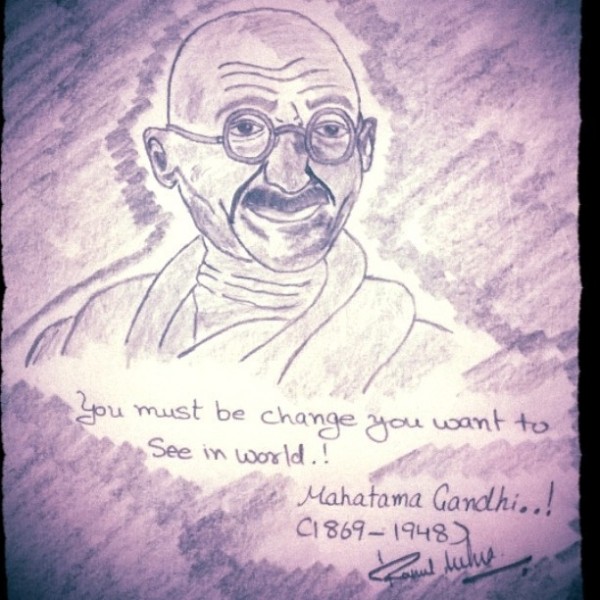 You must be change you want to
See in world.!
Mahatama Gandhi..!
(1869-1948)